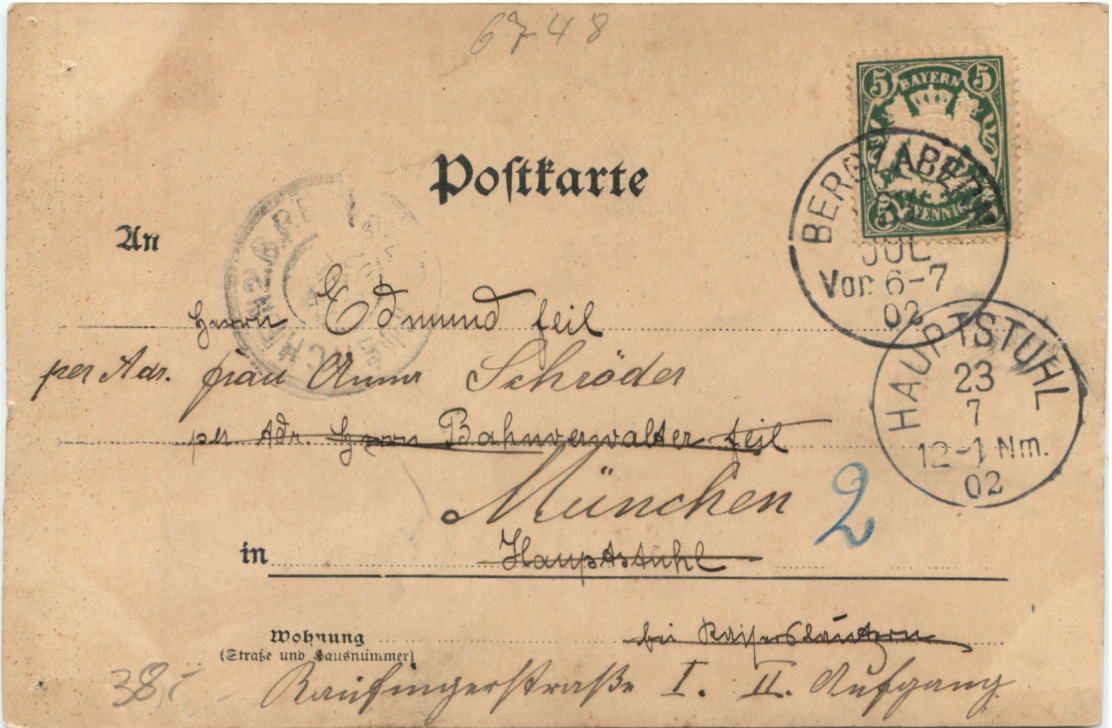 6748
5 BAYERN 5
5 PFENNIG
Poſtkarte
BERGZABERN
JUL
Vor. 6-7
02
An
HAUPTSTUHL
23
7
12-1 Nm.
02
Herrn Edmund Feil
per Adr. Frau Anna Schröder
per Adr. Herrn Bahnverwalter Feil
München
2
in Hauptstuhl
Wohnung
(Straße und Hausnummer)
bei Kaiserslautern
38,-
Kaufingerstraße I. II. Aufgang